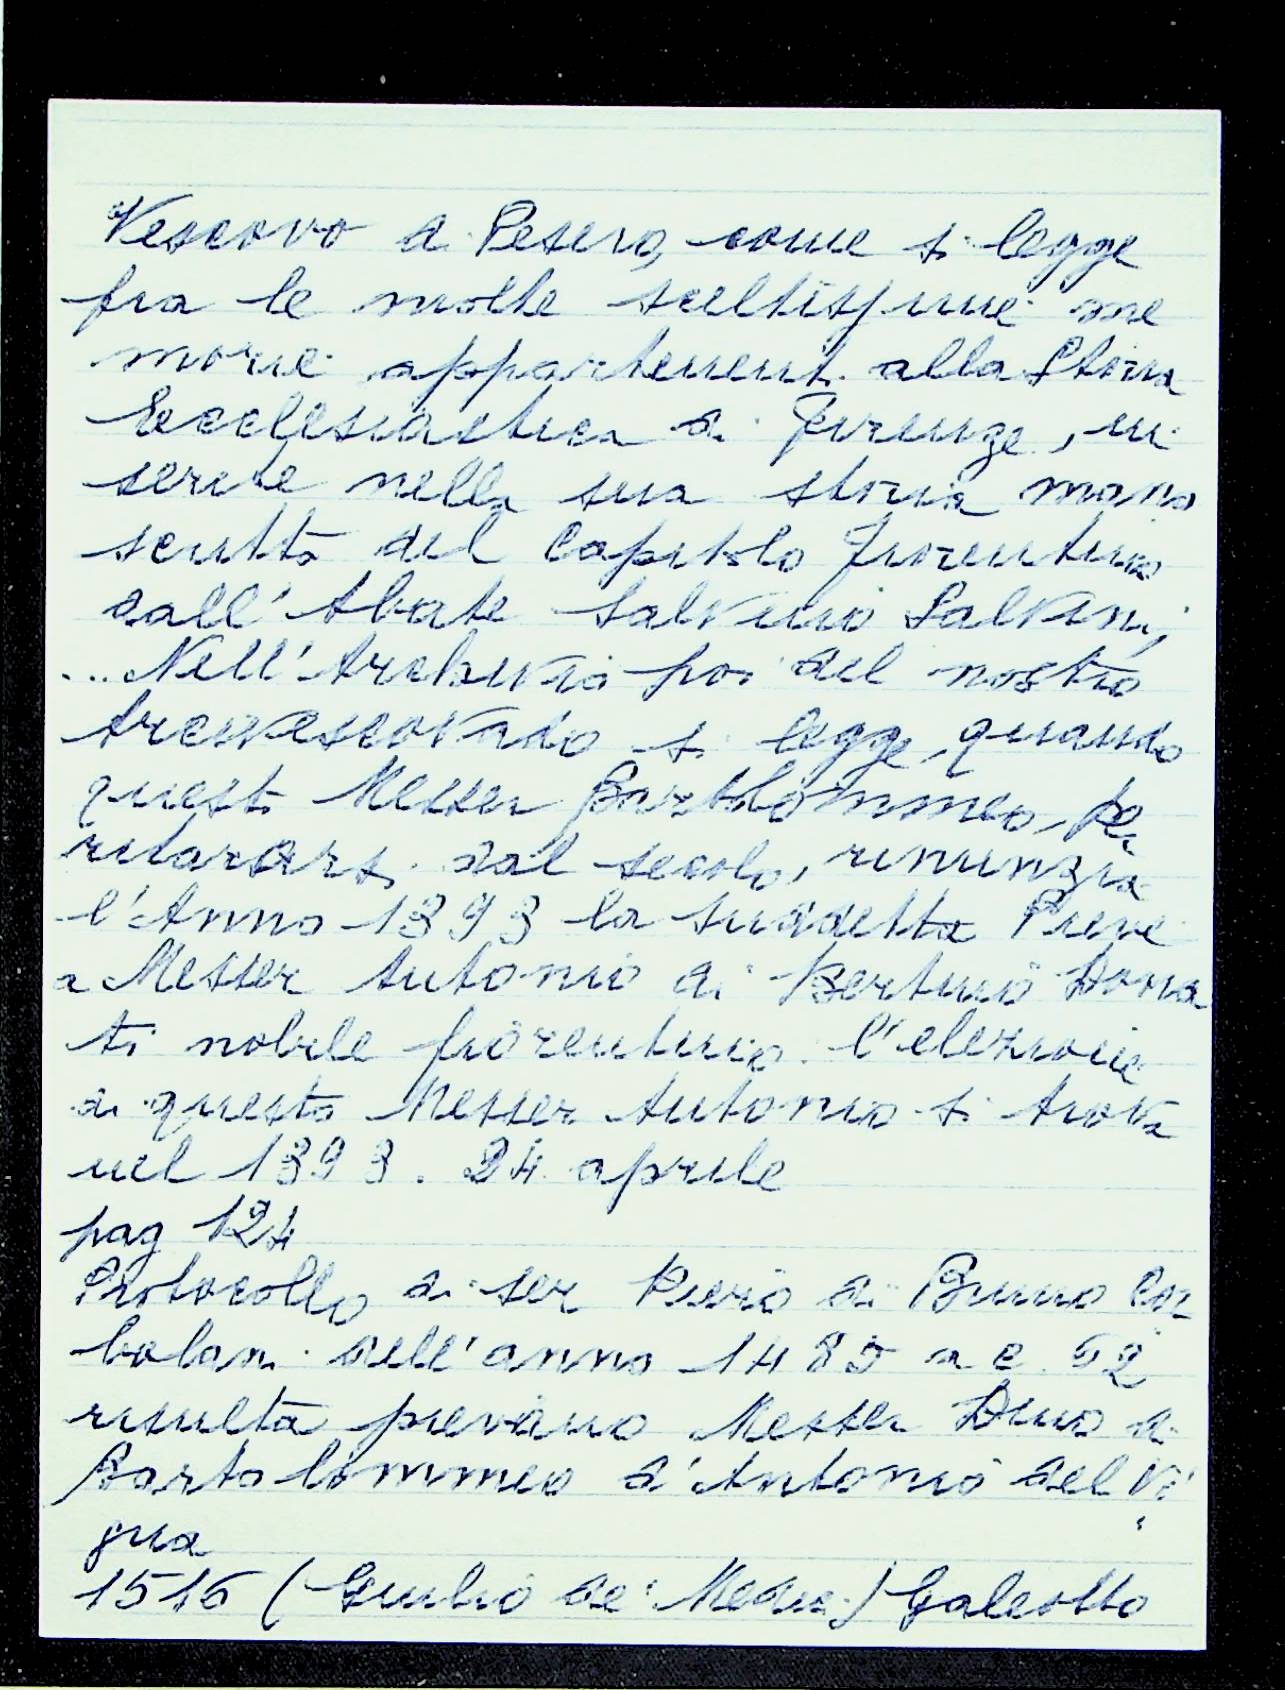 Vescovo di Pesaro, come si legge
fra le molte sceltissime me
morie appartenenti alla Storia
Ecclesiastica di Firenze, in
serite nella sua storia mano
scritta del Capitolo Fiorentino
dall'Abate Salvino Salvini,
... Nell'Archivio poi del nostro
Arcivescovado si legge, quando
questi Messer Bartolommeo, per
ritirarsi dal secolo, rinunzia
l'Anno 1393 la suddetta Pieve
a Messer Antonio di Bertino Dona
ti nobile fiorentino. l'elezione
di questo Messer Antonio si trova
nel 1393. 24 aprile
pag 124
Protocollo di ser Piero di Bruno
dell'anno 1485 a c. 52
risulta pievano Messer Dino di
Bartolommeo d'Antonio del Vi
gna
1516 (Giulio de' Medici) Galeotto